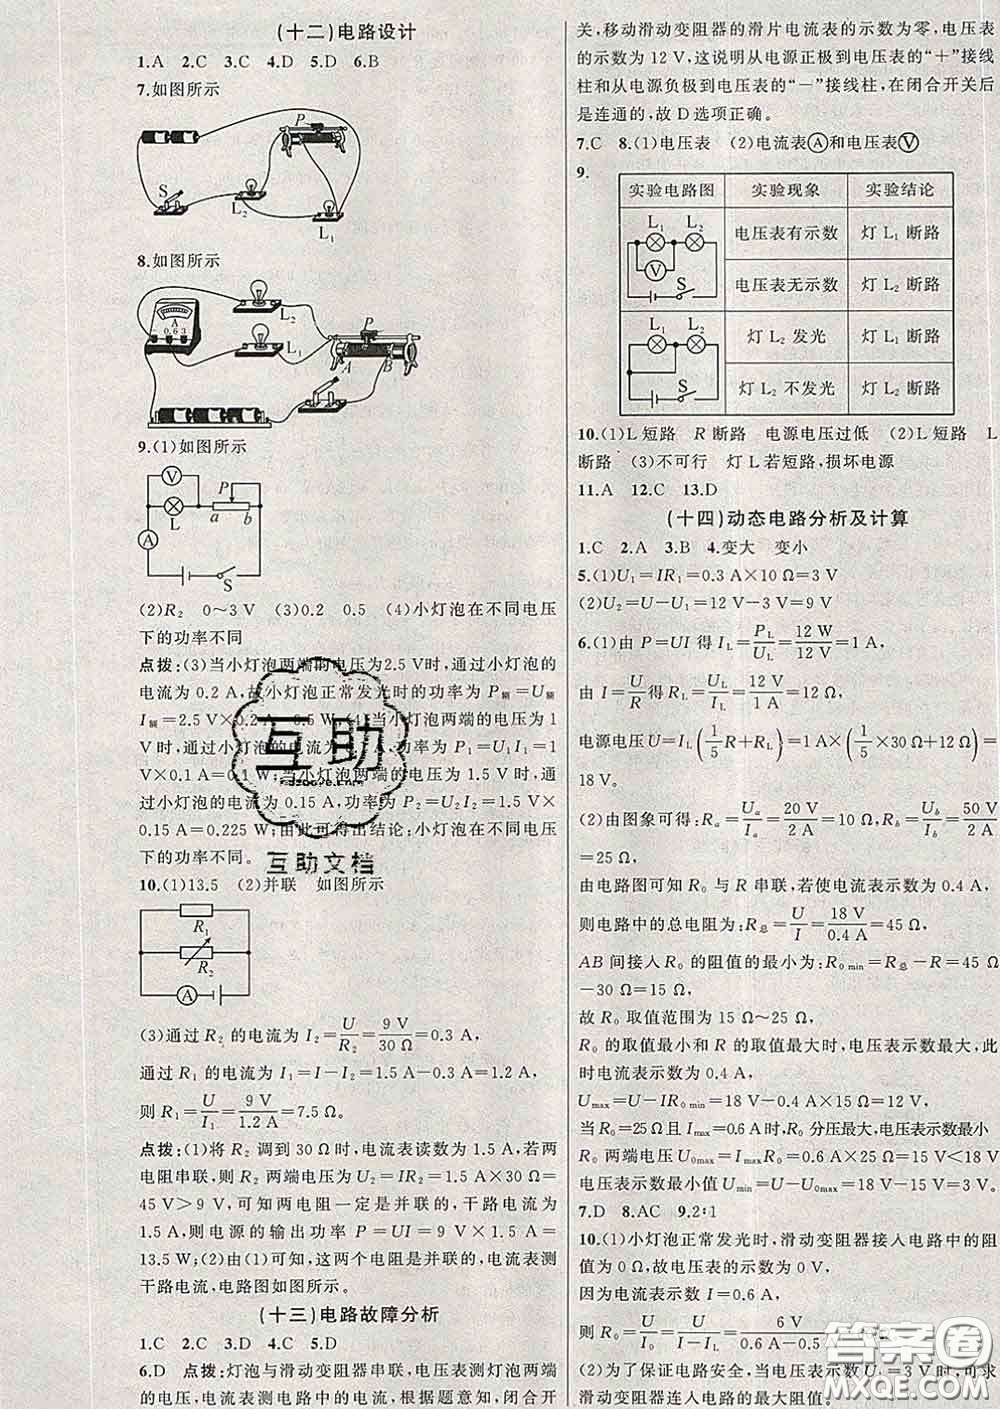 (十二)电路设计
1.A 2.C 3.C 4.D 5.D 6.B
7.如图所示
P
S
L₂
L₁
8.如图所示
L₂
A
0.6 3
L₁
A B
S
9.(1)如图所示
V
P
L a b
A
S
(2)R₂ 0～3 V (3)0.2 0.5 (4)小灯泡在不同电压
下的功率不同
点拨:(3)当小灯泡两端的电压为2.5 V时,通过小灯泡的
电流为 0.2 A,故小灯泡正常发光时的功率为 P额=U额
I额=2.5 V×0.2 A=0.5 W;(4)小灯泡两端的电压为 1
V时,通过小灯泡的电流为0.1 A,功率为 P₁=U₁I₁=1
V×0.1 A=0.1 W;当小灯泡两端的电压为 1.5 V 时,通
过小灯泡的电流为 0.15 A,功率为 P₂=U₂I₂=1.5 V×
0.15 A=0.225 W;由此可得出结论:小灯泡在不同电压
下的功率不同。
10.(1)13.5 (2)并联 如图所示
R₁
R₂
A
(3)通过 R₂ 的电流为 I₂=U/R₂=9 V/30 Ω=0.3 A,
通过 R₁ 的电流为 I₁=I−I₂=1.5 A−0.3 A=1.2 A,
则 R₁=U/I₁=9 V/1.2 A=7.5 Ω。
点拨:(1)将 R₂ 调到 30 Ω时,电流表读数为 1.5 A,若两
电阻串联,则 R₂ 两端电压为 U₂=IR₂=1.5 A×30 Ω=
45 V＞9 V,可知两电阻一定是并联的,干路电流为
1.5 A,则电源的输出功率 P=UI=9 V×1.5 A=
13.5 W;(2)由(1)可知,这两个电阻是并联的,电流表测
干路电流,电路图如图所示。
(十三)电路故障分析
1.C 2.C 3.D 4.C 5.D
6.D 点拨:灯泡与滑动变阻器串联,电压表测灯泡两端
的电压,电流表测电路中的电流,根据题意知,闭合开
关,移动滑动变阻器的滑片电流表的示数为零,电压表
的示数为 12 V,这说明从电源正极到电压表的“+”接线
柱和从电源负极到电压表的“−”接线柱,在闭合开关后
是连通的,故 D 选项正确。
7.C 8.(1)电压表 (2)电流表Ⓐ和电压表Ⓥ
9.
实验电路图 实验现象 实验结论
L₁ L₂ V S
电压表有示数 灯 L₁ 断路
电压表无示数 灯 L₂ 断路
L₁ L₂ S
灯 L₂ 发光 灯 L₁ 断路
灯 L₂ 不发光 灯 L₂ 断路
10.(1)L 短路 R 断路 电源电压过低 (2)L 短路 L
断路 (3)不可行 灯 L 若短路,损坏电源
11.A 12.C 13.D
(十四)动态电路分析及计算
1.C 2.A 3.B 4.变大 变小
5.(1)U₁=IR₁=0.3 A×10 Ω=3 V
(2)U₂=U−U₁=12 V−3 V=9 V
6.(1)由 P=UI 得 I_L=P_L/U_L=12 W/12 V=1 A,
由 I=U/R得 R_L=U_L/I_L=12 V/1 A=12 Ω,
电源电压U=I_L(1/5 R+R_L)=1 A×(1/5×30 Ω+12 Ω)=
18 V.
(2)由图象可得:Rₐ=Uₐ/Iₐ=20 V/2 A=10 Ω,R_b=U_b/I_b=50 V/2 A
=25 Ω,
由电路图可知 R₀ 与 R 串联,若使电流表示数为 0.4 A,
则电路中的总电阻为:R总=U/I=18 V/0.4 A=45 Ω,
AB 间接入 R₀ 的阻值的最小为:R₀ min=R总−R=45 Ω
−30 Ω=15 Ω,
故 R₀ 取值范围为 15 Ω～25 Ω,
R₀ 的取值最小和 R 的取值最大时,电压表示数最大,此
时电流表示数为 0.4 A,
Umax=U−IR₀ min=18 V−0.4 A×15 Ω=12 V
当 R₀=25 Ω 且 Imax=0.6 A时,R₀ 分压最大,电压表示数最小
R₀ 两端电压 U₀max=ImaxR₀=0.6 A×25 Ω=15 V＜18 V
电压表示数最小值 Umin=U−U₀max=18 V−15 V=3 V。
7.D 8.AC 9.2∶1
10.(1)小灯泡正常发光时,滑动变阻器接入电路中的阻
值为 0 Ω,故电压表的示数为 0 V,
因为电流表示数 I=0.6 A,
则 R₀=U/I₀=U/(I−I_L)=6 V/(0.6 A−0.5
(2)为了保证电路安全,当电压表示数 U₁=3 V时,可求
滑动变阻器连入电路的最大阻值。
互助
互助文档
答案圈
MXQE.COM